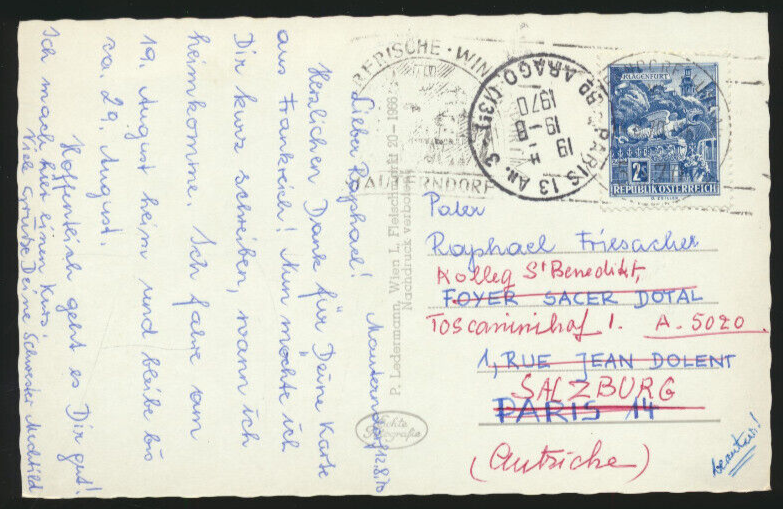 Mauterndorf, 12.8.70
Lieber Raphael!
Herzlichen Dank für Deine Karte
aus Frankreich! Nun möchte ich
Dir kurz schreiben, wann ich
heimkomme. Ich fahre am
19. August heim und bleibe bis
ca. 29. August.
Hoffentlich geht es Dir gut!
Ich mach hier einen Kurs!
Viele Grüße Deine Schwester Mechthild
P. Ledermann, Wien I., Fleischmarkt 20 - 1968
Nachdruck verboten
Echte
Fotografie
MAUTERNDORF
PARIS 13 AN. 3
ARAGO (13e)
19 H
19 - 8
1970
KLAGENFURT
2S
REPUBLIK ÖSTERREICH
Pater
Raphael Friesacher
Kolleg St Benedikt,
FOYER SACER DOTAL
Toscaninihof 1. A-5020
1, RUE JEAN DOLENT
SALZBURG
PARIS 14
(Autriche)